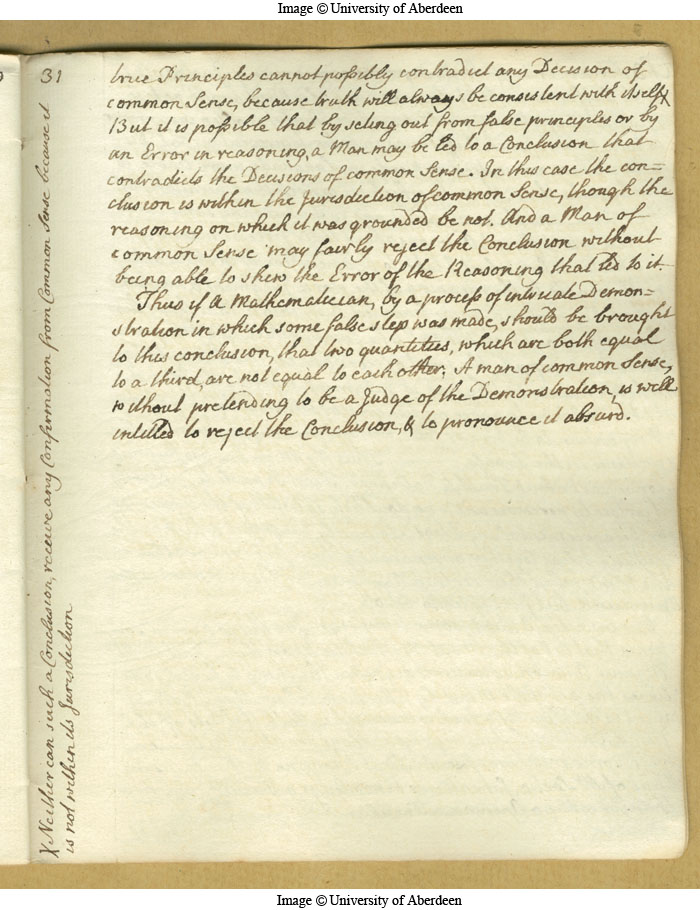 Image © University of Aberdeen
31
true Principles cannot possibly contradict any Decision of
common Sense, because truth will always be consistent with itself X
But it is possible that by seting out from false principles or by
an Error in reasoning, a Man may be led to a Conclusion that
contradicts the Decisions of common Sense. In this case the con=
clusion is within the Jurisdiction of common Sense, though the
reasoning on which it was grounded be not. And a Man of
common Sense may fairly reject the Conclusion without
being able to shew the Error of the Reasoning that led to it.
Thus if a Mathematician, by a process of intricate Demon=
stration in which some false step was made, should be brought
to this conclusion, that two quantities, which are both equal
to a third, are not equal to each other; A man of common Sense,
without pretending to be a Judge of the Demonstration, is well
intitled to reject the Conclusion, & to pronounce it absurd.
X Neither can such a Conclusion, receive any Confirmation from Common Sense because it
is not within its Jurisdiction
Image © University of Aberdeen